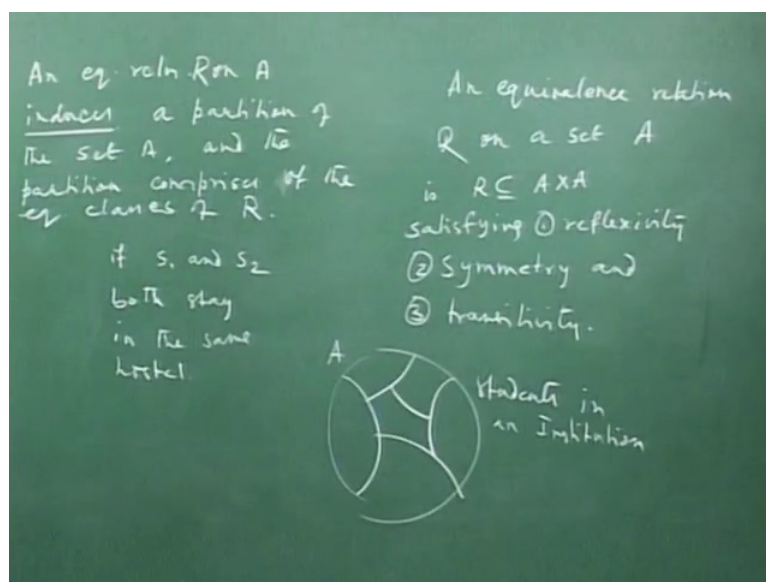 An eq. reln R on A
induces a partition of
the set A, and the
partition comprises of the
eq classes of R.
if S1 and S2
both stay
in the same
hostel.
An equivalence relation
R on a set A
is R ⊆ A×A
satisfying ① reflexivity
② Symmetry and
③ transitivity.
A
students in
an Institution